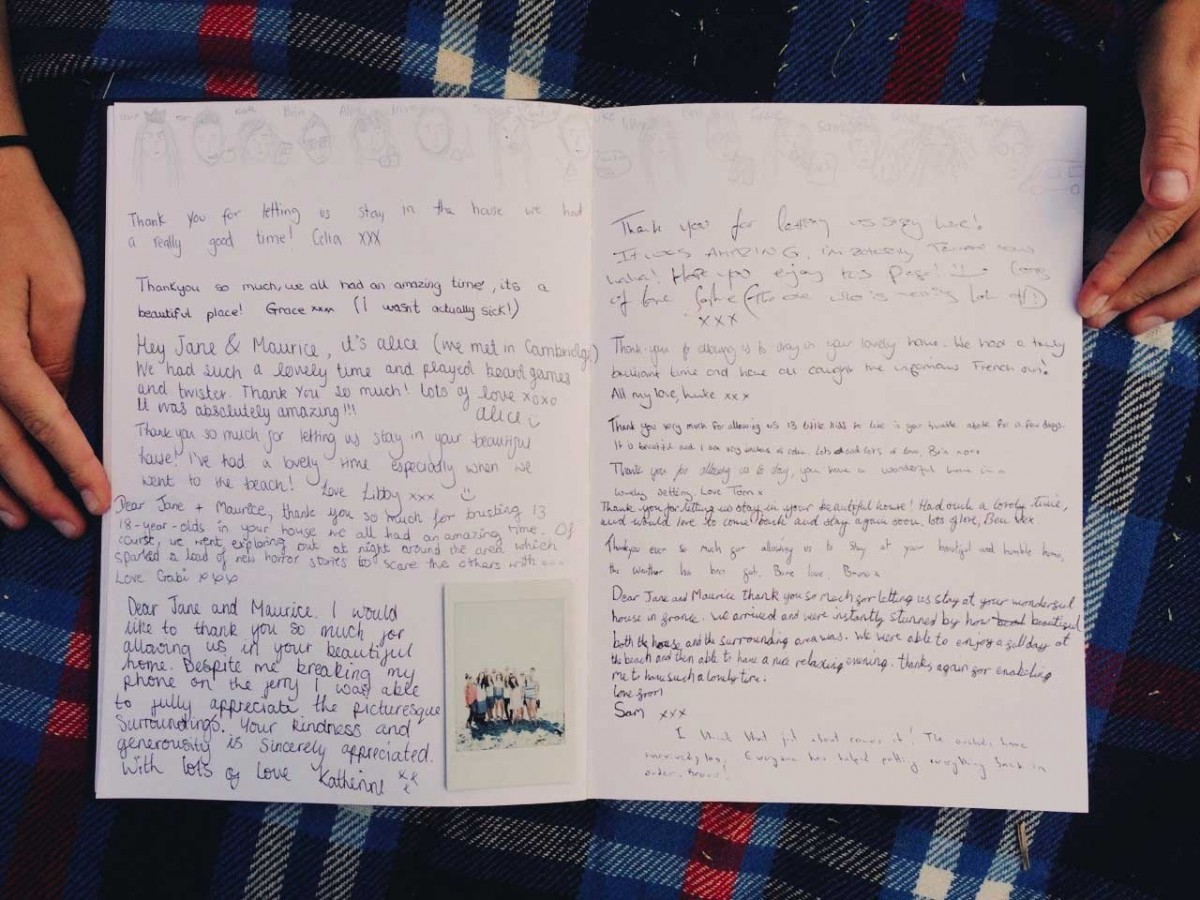 Kate
Thank you for letting us stay in the house we had
a really good time! Celia xxx
Thankyou so much, we all had an amazing time!, its a
beautiful place! Grace xxxx (I wasn't actually sick!)
Hey Jane & Maurice, it's alice (we met in Cambridge)
We had such a lovely time and played board games
and twister. Thank You so much! lots of love xoxo
It was absolutely amazing!!! alice
Thank you so much for letting us stay in your beautiful
house! I've had a lovely time especially when we
went to the beach! Love Libby xxx
Dear Jane + Maurice, thank you so much for trusting 13
18-year-olds in your house we all had an amazing time. Of
course, we went exploring out at night around the area which
sparked a load of new horror stories to scare the others with ...
Love Gabi xxx
Dear Jane and Maurice. I would
like to thank you so much for
allowing us in your beautiful
home. Despite me breaking my
phone on the ferry I was able
to fully appreciate the picturesque
Surroundings. Your kindness and
generosity is sincerely appreciated.
With lots of love Katherine xxx
Thank you for letting us stay here!
It was AMAZING, I'm
Hope you enjoy this page!
of love (the one who is
xxx
Thank you for allowing us to stay in your lovely home. We had a truly
brilliant time and have all caught the infamous French
All my love, Luke xxx
Thank you very much for allowing us 13 little kids to live in your humble abode for a few days.
It is beautiful and I am very Lots and lots of love,
Thank you for allowing us to stay, you have a wonderful home in a
lovely setting. Love Tom x
Thank you for letting us stay in your beautiful house! Had such a lovely time,
and would love to come back and stay again soon. lots of love, Ben xxx
Thankyou ever so much for allowing us to stay at your beautiful and humble home,
the weather has been love,
Dear Jane and Maurice thank you so much for letting us stay at your wonderful
house in france. we arrived and were instantly stunned by how beautiful
both the house and the surrounding area was. We were able to enjoy a full day at
the beach and then able to have a nice relaxing evening. thanks again for enabling
me to have such a lovely time.
love from
Sam xxx
I think that just about covers it! The
Everyone has helped putting everything back in
order,